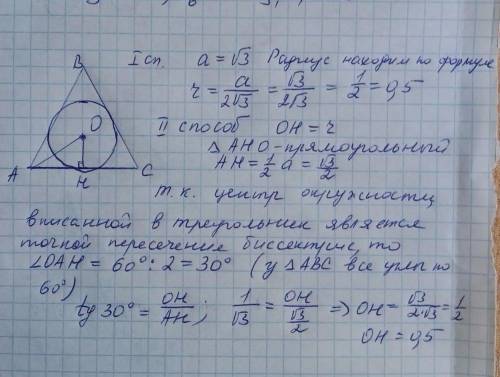 I сп. a = √3 Радиус находим по формуле
r = a/2√3 = √3/2√3 = 1/2 = 0,5
II способ OH = r
△AHO - прямоугольный
AH = 1/2 a = √3/2
т.к. центр окружности
вписанной в треугольник является
точкой пересечения биссектрис, то
∠OAH = 60° : 2 = 30° (у △ABC все углы по
60°)
tg 30° = OH/AH ; 1/√3 = OH/(√3/2) ⇒ OH = √3/2·√3 = 1/2
OH = 0,5
B
O
A
H
C